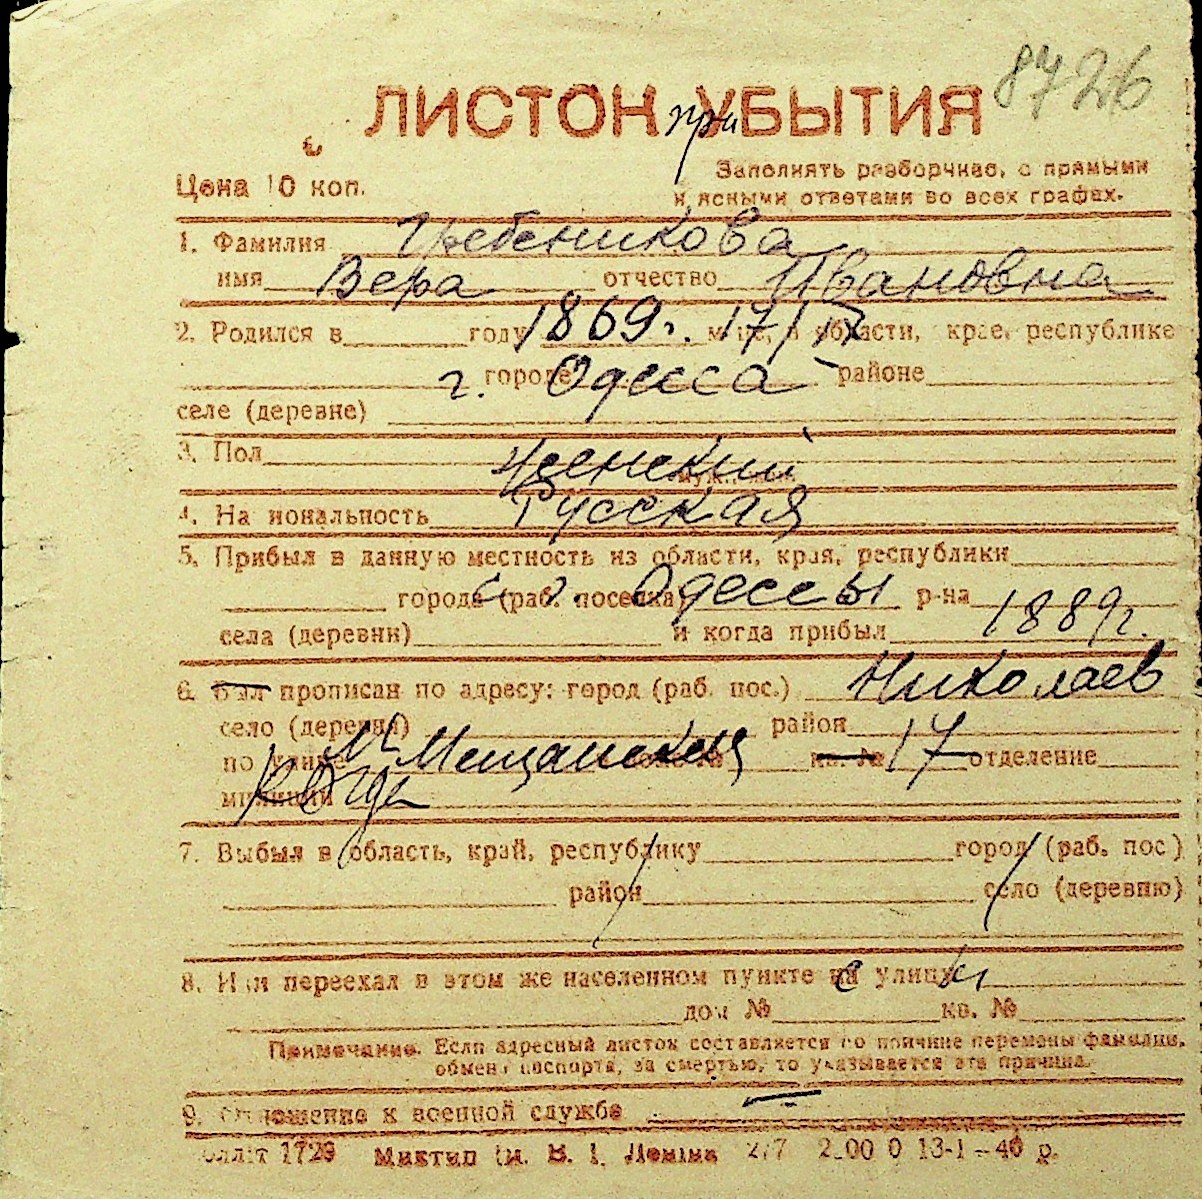 8726
ЛИСТОК при УБЫТИЯ
Цена 10 коп.
Заполнять разборчиво, с прямыми
и ясными ответами во всех графах.
1. Фамилия Гребеникова
имя Вера отчество Ивановна
2. Родился в году 1869г. 17/IX м-це, в области, крае, республике
г. городе Одесса районе
селе (деревне)
3. Пол Женский
4. Национальность Русская
5. Прибыл в данную местность из области, края, республики
города (раб. поселка) г. Одессы р-на
села (деревни) и когда прибыл 1889г.
6. Был прописан по адресу: город (раб. пос.) Николаев
село (деревня) район
по улице Мещанская кв. № 17 отделение
милиции
7. Выбыл в область, край, республику город (раб. пос)
район село (деревню)
8. Или переехал в этом же населенном пункте на улицу
дом № кв. №
Примечание. Если адресный листок составляется по причине перемены фамилии,
обмена паспорта, за смертью, то указывается эта причина.
9. Отношение к военной службе
1729 Миктип ім. В. І. Леніна 13-I-40 р.